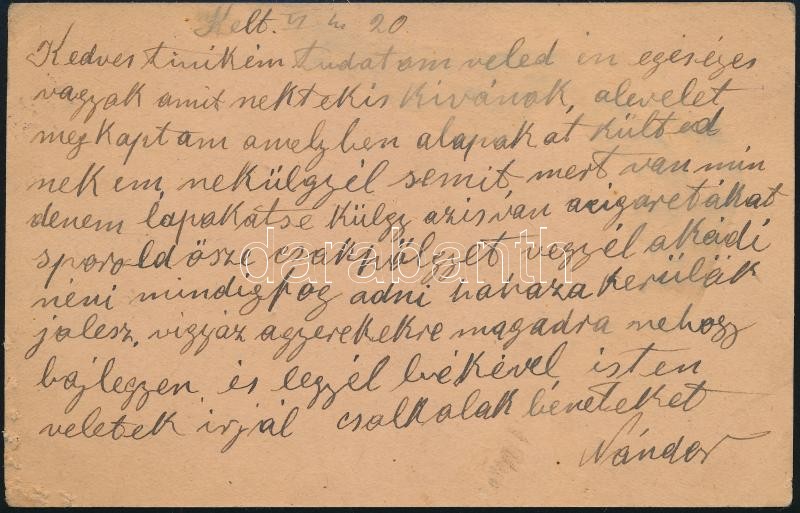 Kelt. VI 20
Kedves tinikém tudatom veled én egéséges
vagyak amit nektekis kivánok, alevelet
megkaptam amelyben alapakat külted
nekem, nekülgyél semit mert van min
denem lapakatse külgy azisván acigaretákat
sporold ösze csak pölgyet vegyél akádi
néni mindigfog adni haháza kerülök
jolesz, vigyáz agyerekekre magadra nehogy
bajlegyen, és legyél békével isten
veletek irjál csalkalak béneteket
Nándor
darabanth